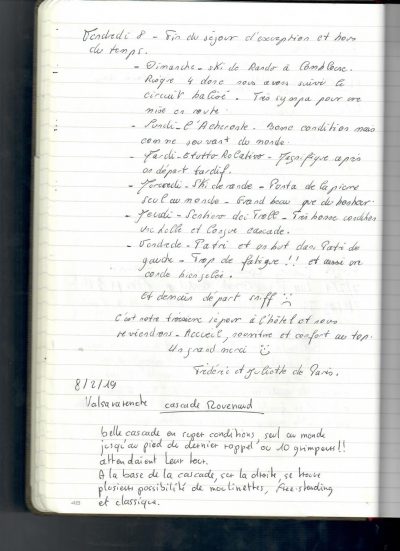 Vendredi 8 - Fin du séjour d'exception et hors
du temps.
- Dimanche - ski de Rando à
Risque 4 donc nous avons suivi le
circuit balisé. Très sympa pour une
mise en route.
- Lundi - l'Acheronte. Bonne condition mais
comme souvent du monde.
- Mardi - Tutto Relativo - Magnifique après
un départ tardif.
- Mercredi - Ski de rando - Punta de la pierre
seul au monde - Grand beau que du bonheur.
- Jeudi - Sentiero dei Troll - Très bonne condition
très belle et longue cascade.
- Vendredi - Patri et on but dans Patri de
gauche - Trop de fatigue !! et aussi une
corde bien gelée.
Et demain départ sniff ☹
C'est notre troisième séjour à l'hôtel et nous
reviendrons - Accueil, nourriture et confort au top.
Un grand merci ☺
Frédéric et Juliette de Paris.
8/2/19
Valsavarenche cascade Rovenaud
belle cascade en super conditions, seul au monde
jusqu'au pied du dernier rappel où 10 grimpeurs!!
attendaient leur tour.
A la base de la cascade, sur la droite, se trouve
plusieurs possibilité de moulinettes, free-standing
et classique.
48